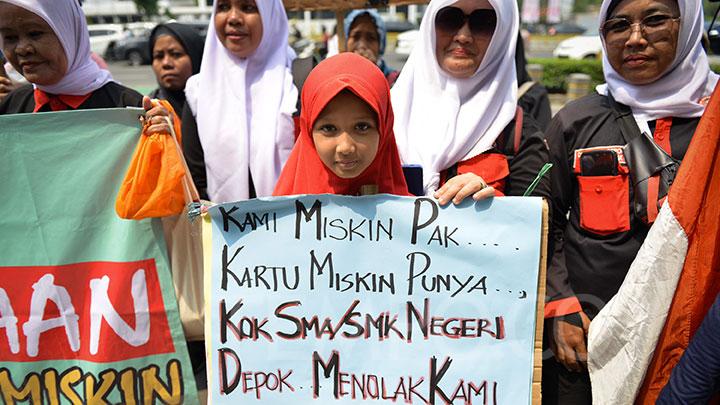 KAMI MISKIN PAK.....
KARTU MISKIN PUNYA...,
KOK SMA/SMK NEGERI
DEPOK...MENOLAK KAMI
AAN
MISKIN